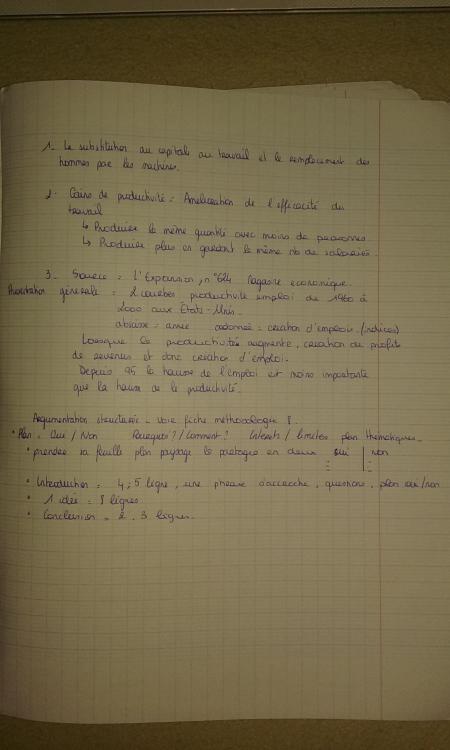 1_ La substitution du capital au travail et le remplacement des
hommes par les machines.
2_ Gains de productivité = Amélioration de l'efficacité du
travail
↳ Produire la même quantité avec moins de personnes.
↳ Produire plus en gardant le même nb de salariés.
3_ Source = L'Expansion, n°624 Magasine economique.
Présentation générale = 2 courbes productivité emploi de 1960 à
2000 aux États-Unis.
abscisse = année ordonnée = création d'emplois. (indices)
Lorsque la productivité augmente, création de profits
de revenus et donc création d'emploi.
Depuis 95 la hausse de l'emploi est moins importante
que la hausse de la productivité.
Argumentation structurée _ voir fiche méthodologie 8.
• Plan : Oui / Non Pourquoi ? / Comment ? Intérêts / limites plan thématiques.
• prendre sa feuille plan paysage la partager en deux oui | non
• Introduction = 4, 5 ligne, une phrase d'accroche, questions, plan oui/non
• 1 idée = 8 lignes
• Conclusion = 2, 3 lignes.